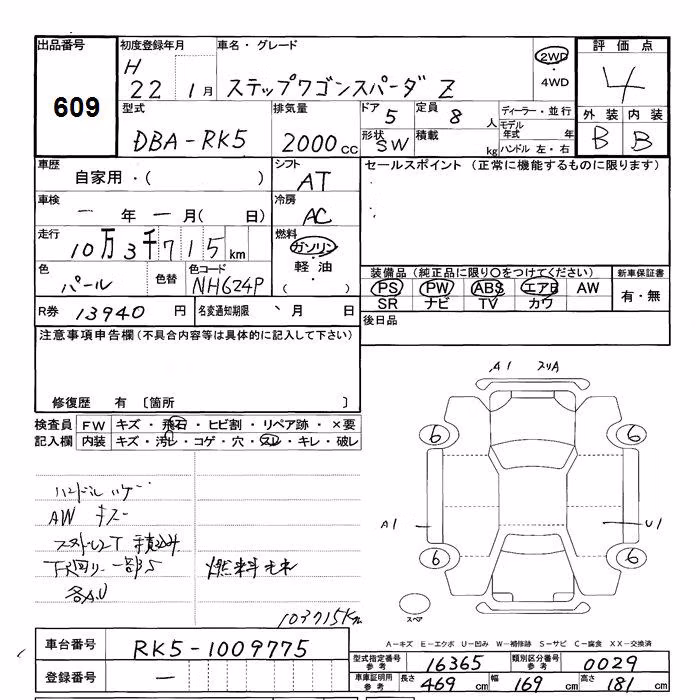 出品番号
609
初度登録年月
H
22 1月
車名・グレード
ステップワゴンスパーダ Z
2WD
・
4WD
評価点
4
外装 内装
B B
型式
DBA-RK5
排気量
2000cc
ドア 5
定員 8人
形状 SW
積載 kg
ディーラー・並行
モデル
年式 年
ハンドル 左・右
車歴
自家用・( )
シフト
AT
セールスポイント (正常に機能するものに限ります)
車検
一年 一月( 日)
冷房
AC
走行
10万3千715km
燃料
ガソリン
・
軽油
・
( )
色
パール
色替
色コード
NH624P
装備品 (純正品に限り○をつけてください)
PS PW ABS エアB AW
SR ナビ TV カワ
新車保証書
有・無
R券 13940 円
名変通知期限 月 日
後日品
注意事項申告欄 (不具合内容等は具体的に記入して下さい)
修復歴 有 〔箇所 〕
検査員
記入欄
FW キズ・飛石・ヒビ割・リペア跡・×要
内装 キズ・汚レ・コゲ・穴・スレ・キレ・破レ
ハンドル ハゲ
AW キズ
下回り一部S
各A.U
燃料
103715Km
A1 スリA
6 6
A1 U1
6 6
スペア
A-キズ E-エクボ U-凹み W-補修跡 S-サビ C-腐食 XX-交換済
車台番号 RK5-1009775
登録番号 一
型式指定番号
参考
16365
類別区分番号
参考
0029
車庫証明用
参考
長さ 469 cm 幅 169 cm 高さ 181 cm